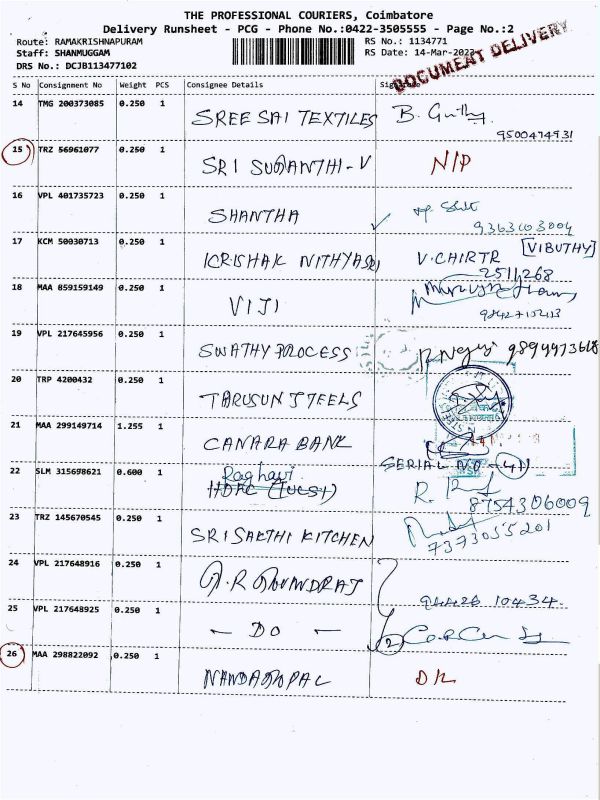 THE PROFESSIONAL COURIERS, Coimbatore
Delivery Runsheet - PCG - Phone No.:0422-3505555 - Page No.:2
Route: RAMAKRISHNAPURAM RS No.: 1134771
Staff: SHANMUGGAM RS Date: 14-Mar-2023
DRS No.: DCJB113477102
DOCUMENT DELIVERY
S No Consignment No Weight PCS Consignee Details
14 TMG 200373085 0.250 1 SREE SAI TEXTILES B.
9500474931
15 TRZ 56961077 0.250 1 SRI SUGANTHI-V N/P
16 VPL 401735723 0.250 1 SHANTHA
17 KCM 50030713 0.250 1 KRISHAK NITHYASRI V.CHIRTR [VIBUTHY]
2511268
18 MAA 859159149 0.250 1 VIJI
19 VPL 217645956 0.250 1 SWATHY PROCESS
20 TRP 4200432 0.250 1 TARUSUN STEELS
21 MAA 299149714 1.255 1 CANARA BANK
SERIAL NO - 41
22 SLM 315698621 0.600 1 Raghavi R.
8754306009
23 TRZ 145670545 0.250 1 SRI SAKTHI KITCHEN
7373055201
24 VPL 217648916 0.250 1 G.R GOVINDRAJ
10434
25 VPL 217648925 0.250 1 - DO - 2
26 MAA 298822092 0.250 1 NANDAGOPAL D/L